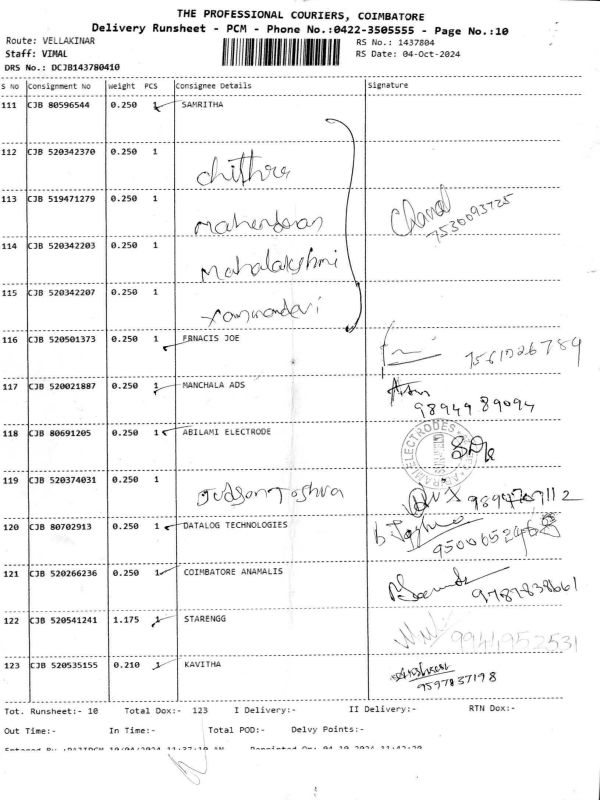 THE PROFESSIONAL COURIERS, COIMBATORE
Delivery Runsheet - PCM - Phone No.:0422-3505555 - Page No.:10
Route: VELLAKINAR
RS No.: 1437804
Staff: VIMAL
RS Date: 04-Oct-2024
DRS No.: DCJB143780410
S No Consignment No Weight PCS Consignee Details Signature
111 CJB 80596544 0.250 1 SAMRITHA
112 CJB 520342370 0.250 1 Chithra
113 CJB 519471279 0.250 1 Mahendran
7530093725
114 CJB 520342203 0.250 1 Mahalakshmi
115 CJB 520342207 0.250 1
116 CJB 520501373 0.250 1 FRNACIS JOE
117 CJB 520021887 0.250 1 MANCHALA ADS
98949 89094
118 CJB 80691205 0.250 1 ABILAMI ELECTRODE
119 CJB 520374031 0.250 1 Judson Joshva
9894709112
120 CJB 80702913 0.250 1 DATALOG TECHNOLOGIES
121 CJB 520266236 0.250 1 COIMBATORE ANAMALIS
9787838661
122 CJB 520541241 1.175 1 STARENGG
9944952531
123 CJB 520535155 0.210 1 KAVITHA
9597837198
Tot. Runsheet:- 10 Total Dox:- 123 I Delivery:- II Delivery:- RTN Dox:-
Out Time:- In Time:- Total POD:- Delvy Points:-